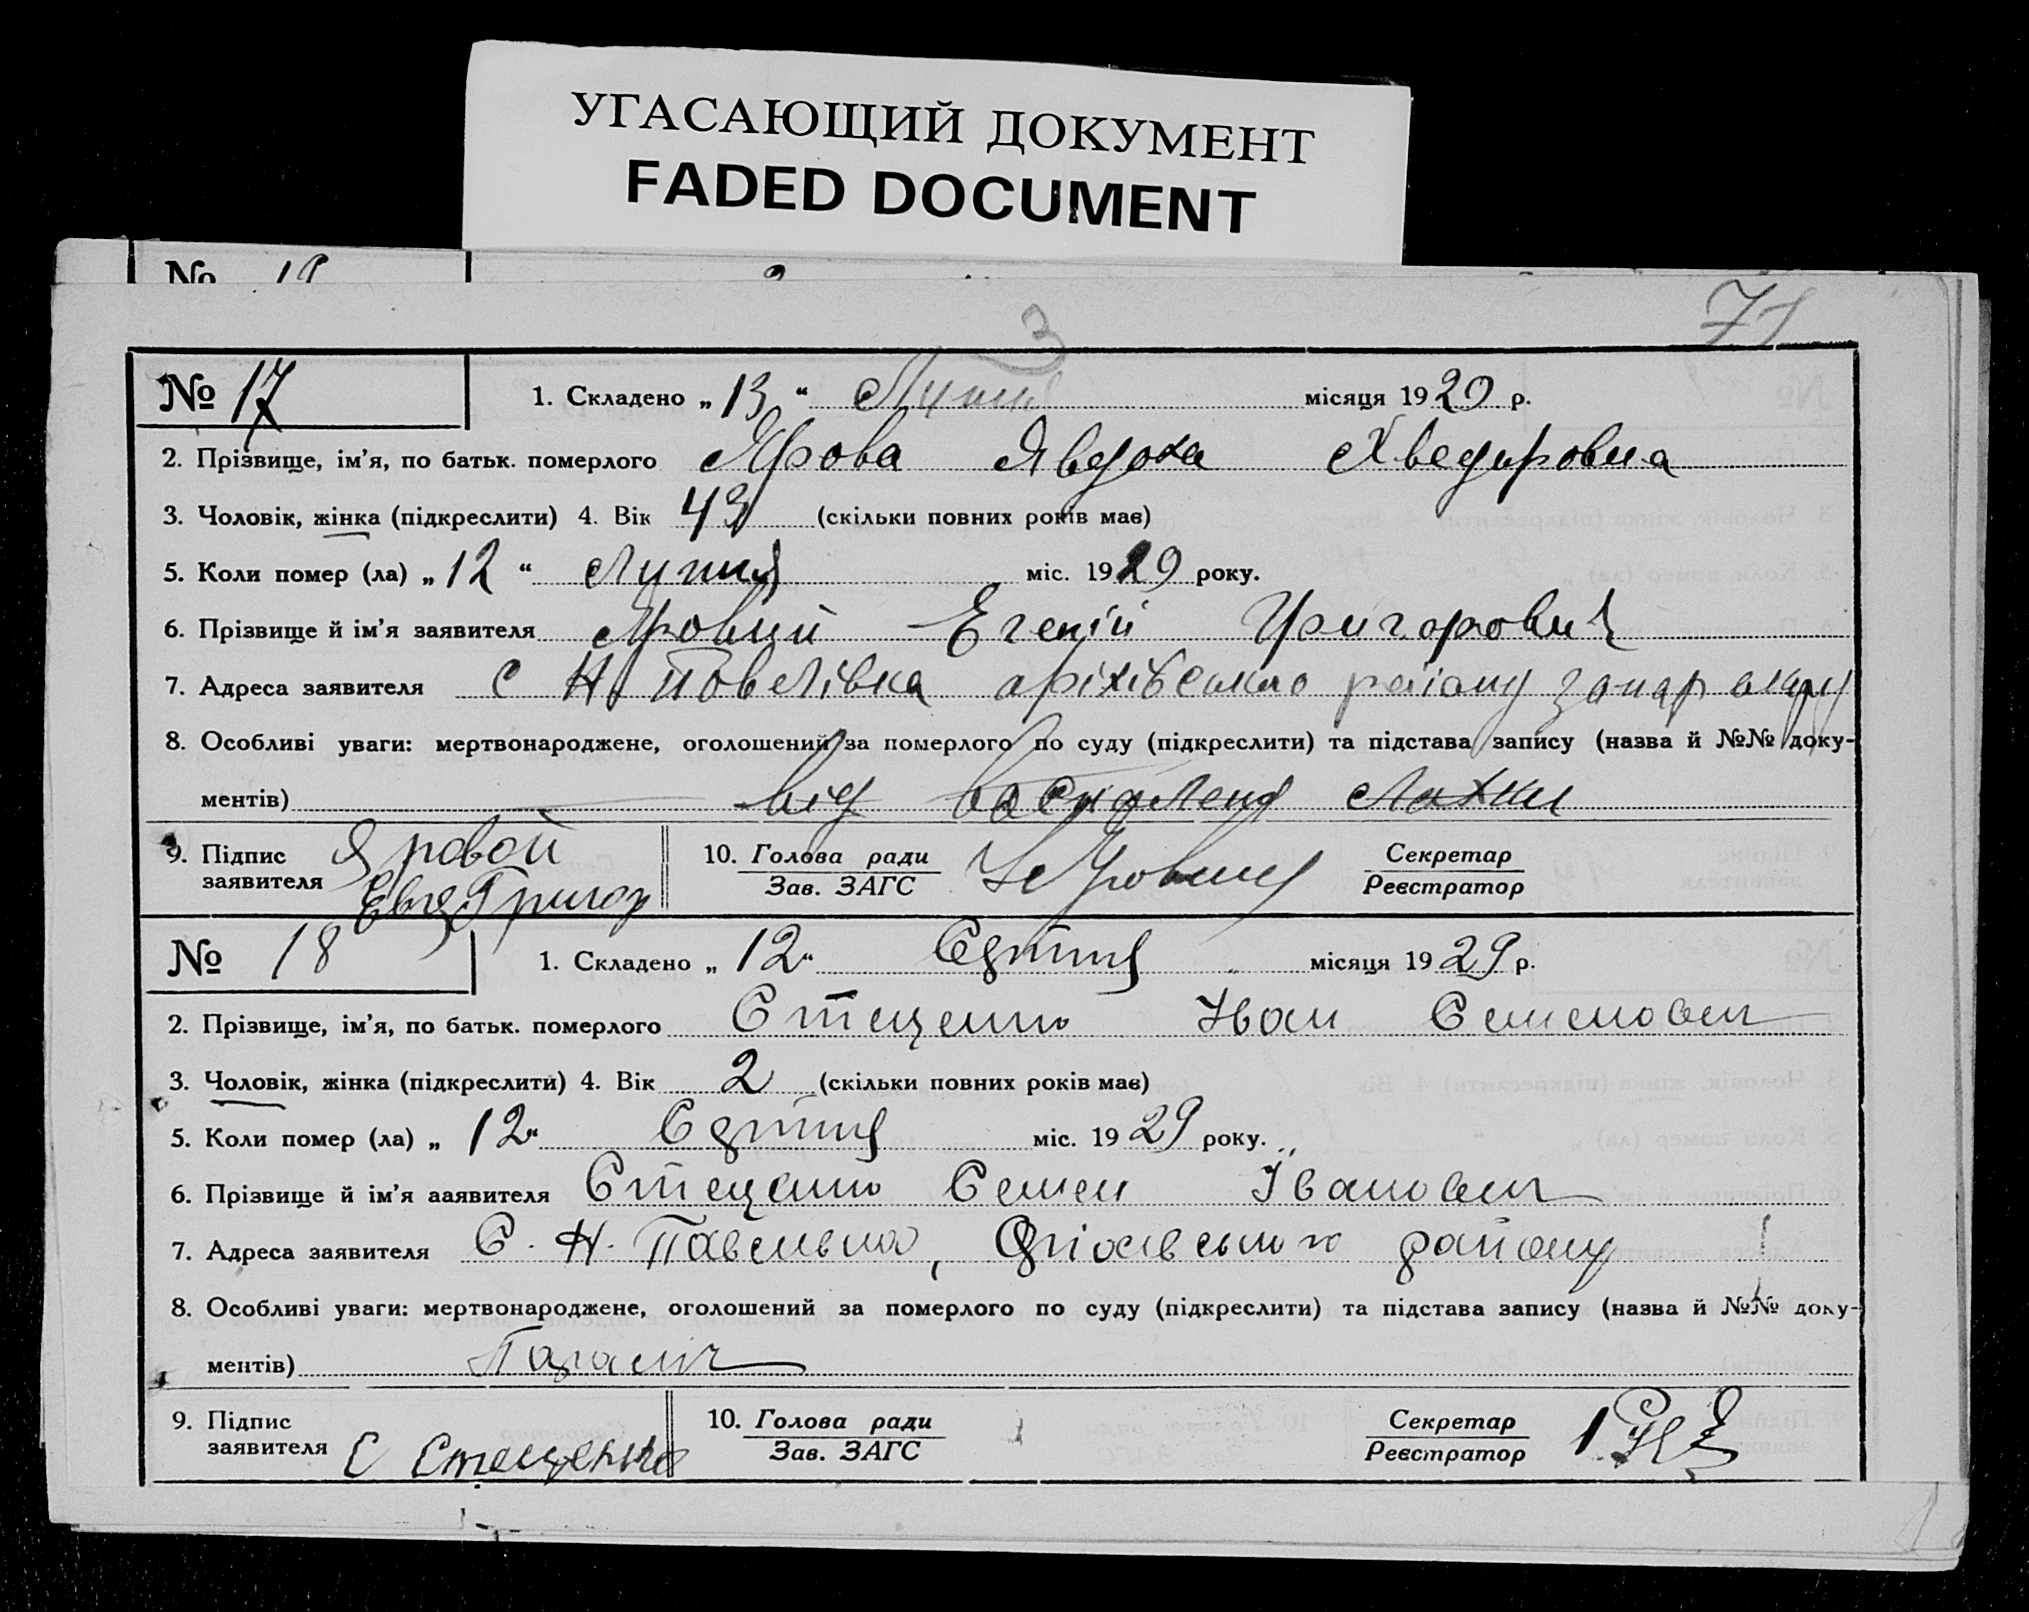 УГАСАЮЩИЙ ДОКУМЕНТ
FADED DOCUMENT
№ 19
71
3
№ 17
1. Складено „ 13 “ Лютня місяця 1929 р.
2. Прізвище, ім’я, по батьк. померлого Ярова Явдоха Хведировна
3. Чоловік, жінка (підкреслити) 4. Вік 43 (скільки повних років має)
5. Коли помер (ла) „ 12 “ Лютня міс. 1929 року.
6. Прізвище й ім’я заявителя Яровий Егеній Григорович
7. Адреса заявителя с Н. Повлівка оріхівського району запар округу
8. Особливі уваги: мертвонароджене, оголошений за померлого по суду (підкреслити) та підстава запису (назва й №№ доку-
ментів) від
9. Підпис заявителя Яровой Евг Григор
10. Голова ради
Зав. ЗАГС
Секретар
Реєстратор
№ 18
1. Складено „ 12 “ місяця 1929 р.
2. Прізвище, ім’я, по батьк. померлого Стеценко Іван Семенович
3. Чоловік, жінка (підкреслити) 4. Вік 2 (скільки повних років має)
5. Коли помер (ла) „ 12 “ міс. 1929 року.
6. Прізвище й ім’я заявителя Стеценко Семен Іванович
7. Адреса заявителя С. Н. Павлівка, Оріхівського району
8. Особливі уваги: мертвонароджене, оголошений за померлого по суду (підкреслити) та підстава запису (назва й №№ доку-
ментів) Параліч
9. Підпис заявителя С Стеценко
10. Голова ради
Зав. ЗАГС
Секретар
Реєстратор